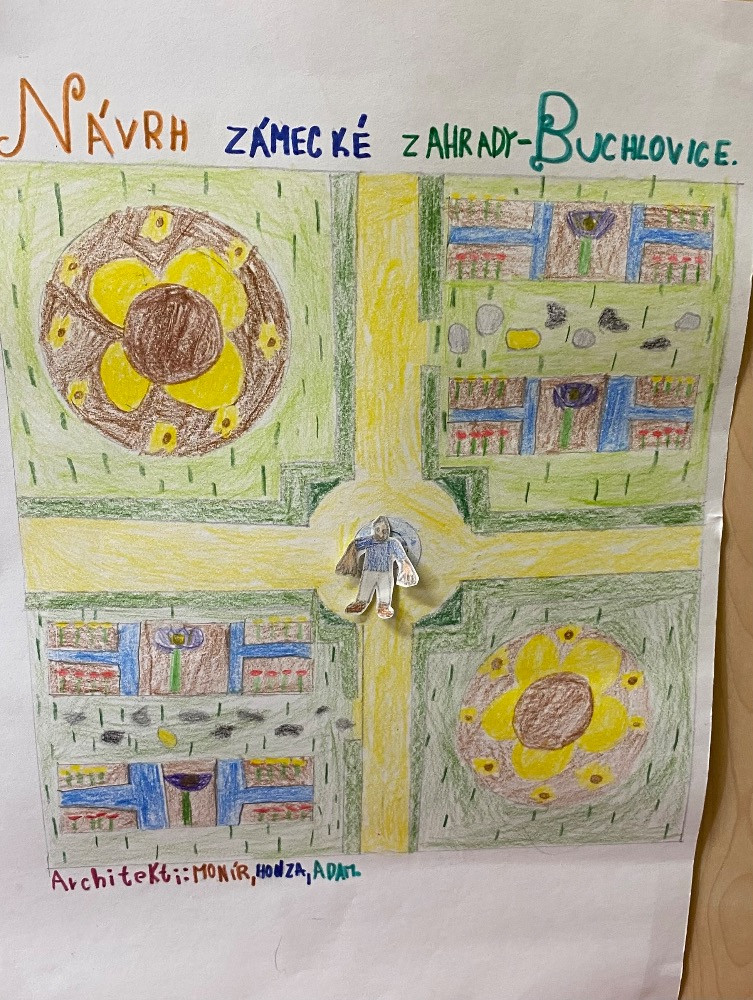 NÁVRH ZÁMECKÉ ZAHRADY-BUCHLOVICE.
Architekti: MONÍR, HONZA, ADAM.